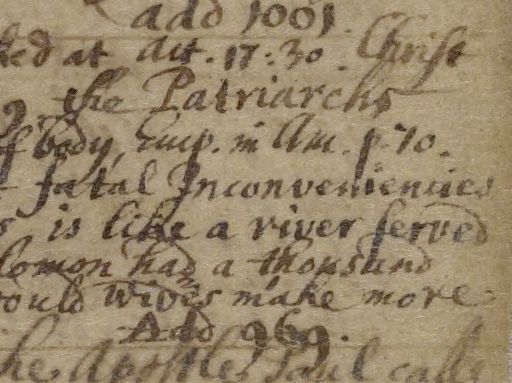 add 1001
ked at Act. 17:30. Christ
the Patriarchs
f body, in Am. p. 70.
fatal Inconveniencies
s is like a river served
lomon had a thousand
would wives make more
Add 969.
the Apostle Paul calls